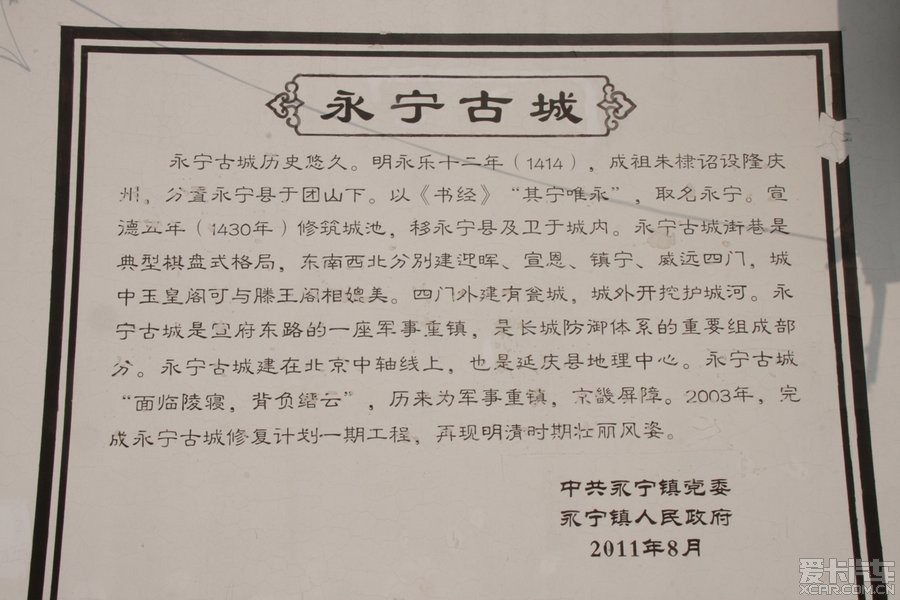 永宁古城
永宁古城历史悠久。明永乐十二年（1414），成祖朱棣诏设隆庆
州，分置永宁县于团山下。以《书经》“其宁唯永”，取名永宁。宣
德五年（1430年）修筑城池，移永宁县及卫于城内。永宁古城街巷是
典型棋盘式格局，东南西北分别建迎晖、宣恩、镇宁、威远四门，城
中玉皇阁可与滕王阁相媲美。四门外建有瓮城，城外开挖护城河。永
宁古城是宣府东路的一座军事重镇，是长城防御体系的重要组成部
分。永宁古城建在北京中轴线上，也是延庆县地理中心。永宁古城
“面临陵寝，背负缙云”，历来为军事重镇，京畿屏障。2003年，完
成永宁古城修复计划一期工程，再现明清时期壮丽风姿。
中共永宁镇党委
永宁镇人民政府
2011年8月
爱卡汽车
XCAR.COM.CN